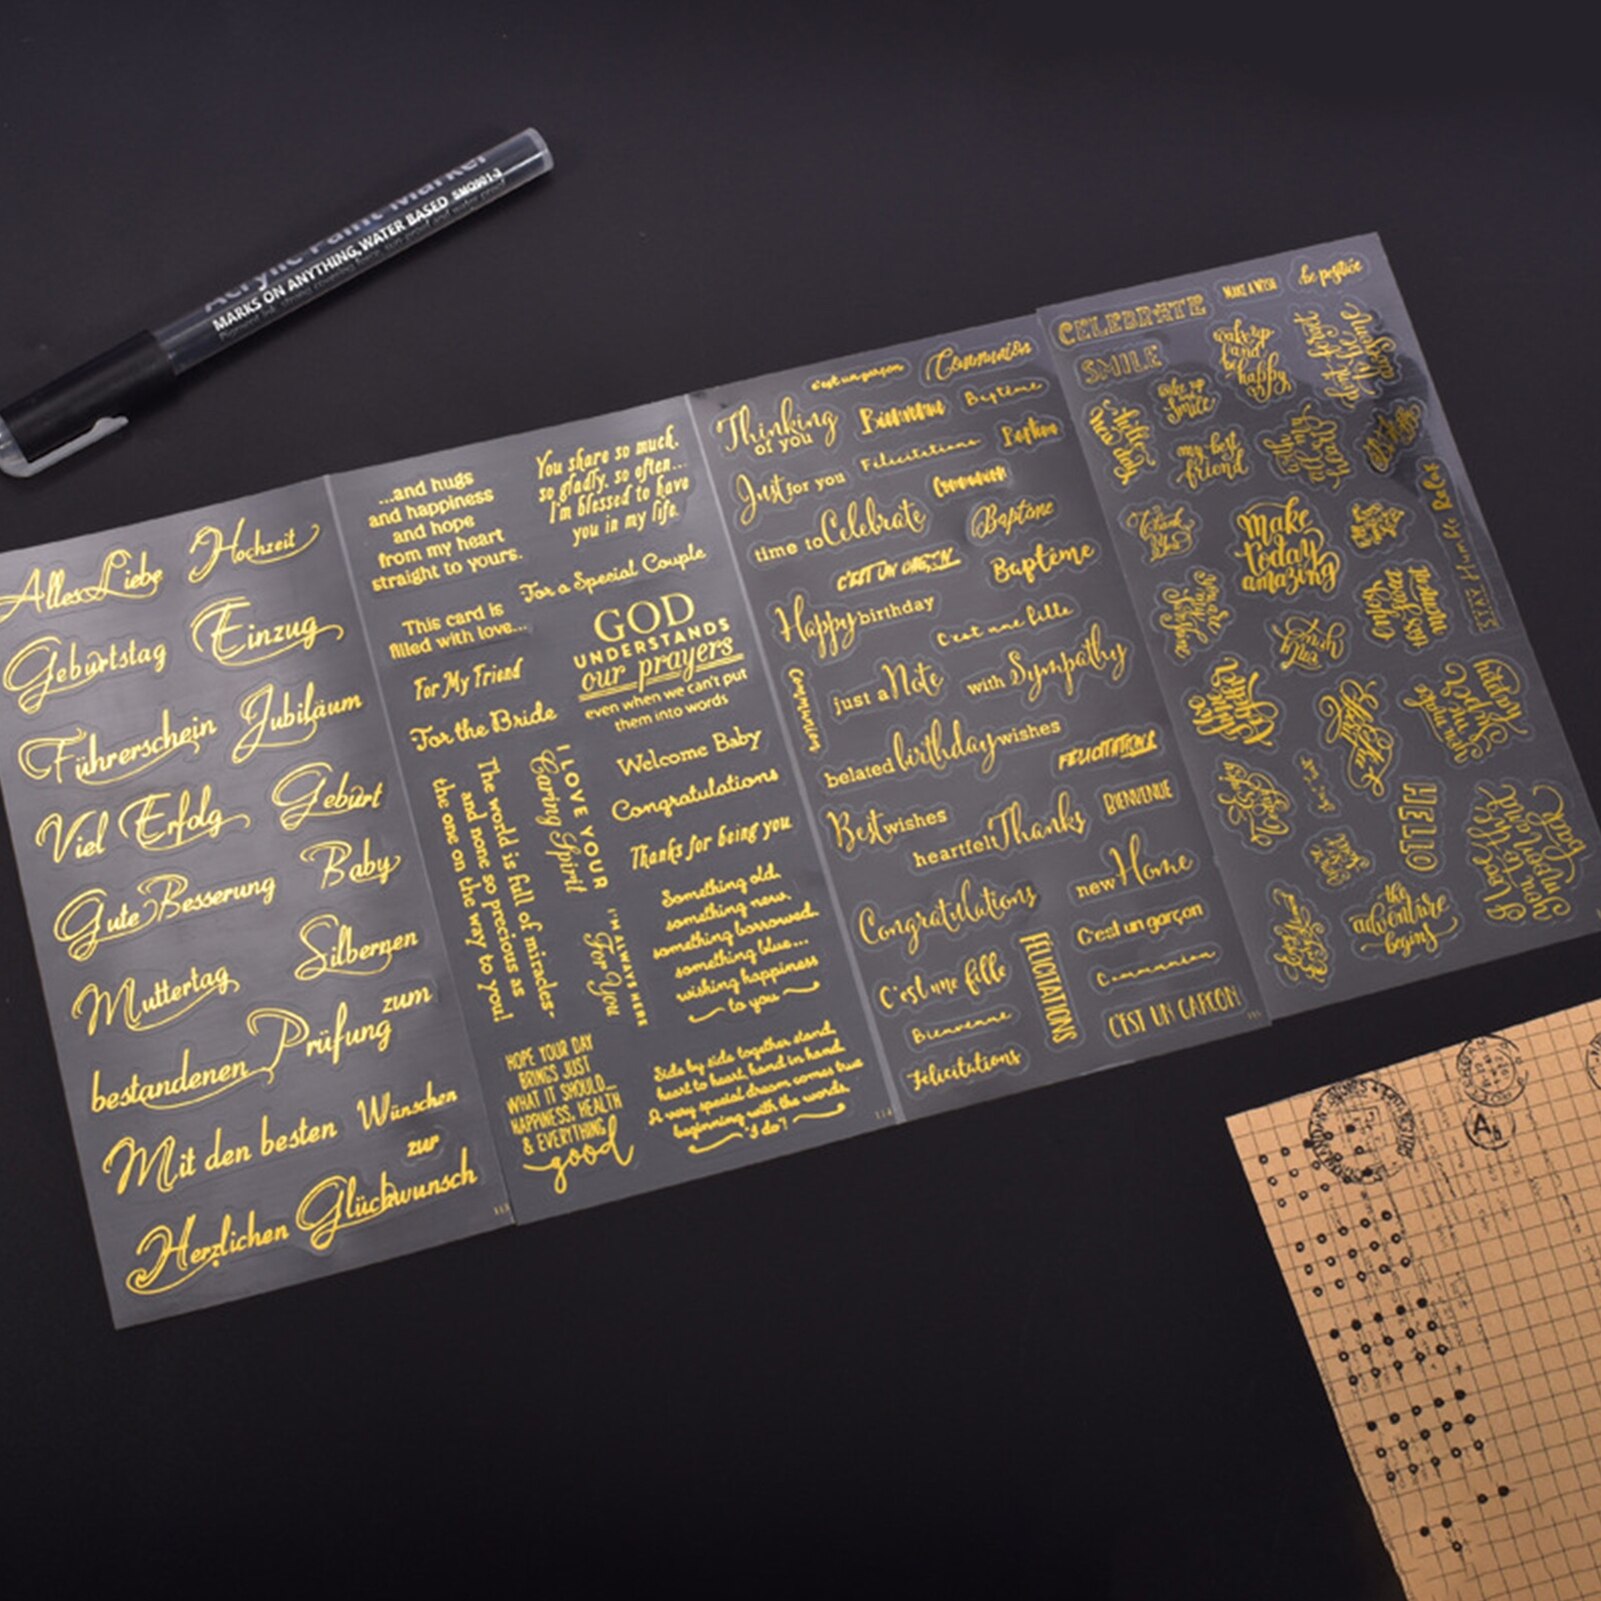 Acrylic Paint Marker
MARKS ON ANYTHING, WATER BASED SMQ901-3
Alles Liebe
Hochzeit
Geburtstag
Einzug
Führerschein
Jubiläum
Viel Erfolg
Geburt
Gute Besserung
Baby
Muttertag
Silbernen
zum
bestandenen Prüfung
Mit den besten Wünschen
zur
Herzlichen Glückwunsch
113
...and hugs
and happiness
and hope
from my heart
straight to yours.
You share so much,
so gladly, so often...
I'm blessed to have
you in my life.
For a Special Couple
This card is
filled with love...
For My Friend
For the Bride
GOD
UNDERSTANDS
our prayers
even when we can't put
them into words
Welcome Baby
Congratulations
Thanks for being you
I LOVE YOUR
Caring Spirit
The world is full of miracles-
and none so precious as
the one on the way to you!
I'M ALWAYS HERE
For You
Something old,
something new,
something borrowed,
something blue...
wishing happiness
to you
HOPE YOUR DAY
BRINGS JUST
WHAT IT SHOULD...
HAPPINESS, HEALTH
& EVERYTHING
good
Side by side together stand,
heart to heart, hand in hand.
A very special dream comes true
beginning with the words,
"I do"!
114
c'est un garçon
Communion
Thinking
of you
Bienvenue
Baptême
Just for you
Félicitations
Baptême
Communion
time to Celebrate
Baptême
Baptême
Happy birthday
C'est une fille
Communion
just a Note
with Sympathy
belated birthday wishes
FÉLICITATIONS
Best wishes
BIENVENUE
heartfelt Thanks
new Home
Congratulations
C'est un garçon
C'est une fille
FÉLICITATIONS
Communion
Bienvenue
C'EST UN GARÇON
Félicitations
115
CELEBRATE
MAKE A WISH
be positive
SMILE
wake up
and
be
happy
wake up
and
smile
my best
friend
with
all my
heart
thank
you
Make
today
amazing
Relax
STAY Humble
enjoy
this good
moment
you make
me
super
happy
HELLO
the
adventure
begins
I love you
to the
moon and
back
Ab